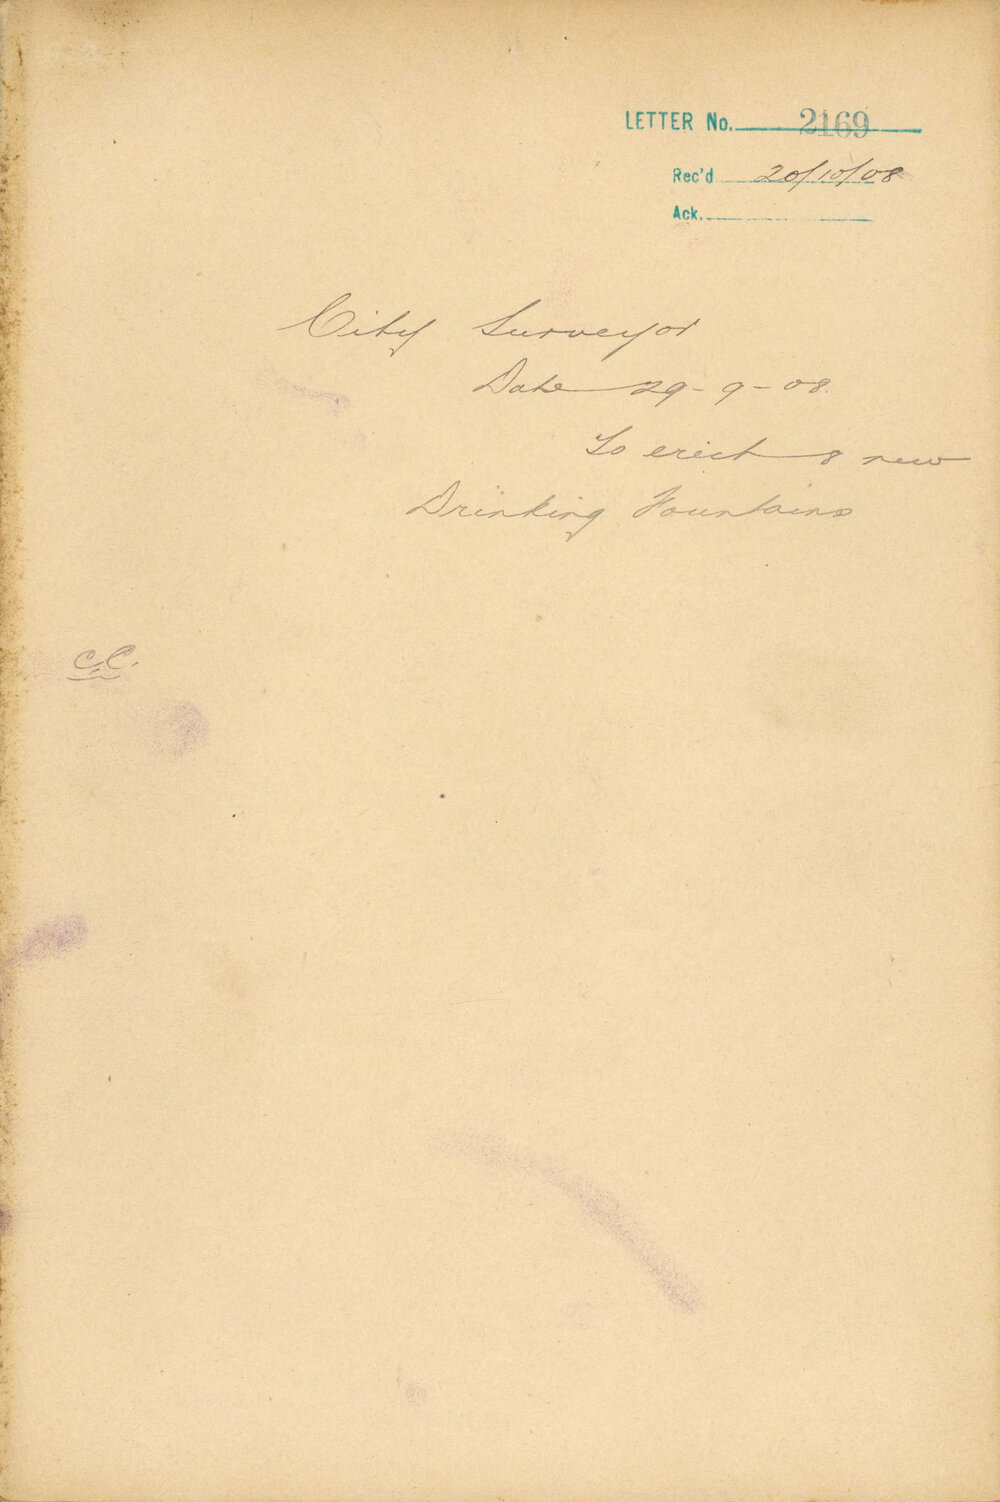 LETTER No. 2169
Rec'd 20/10/08
Ack.
City Surveyor
Date 29-9-08.
To erect 8 new
Drinking Fountains
C.C.